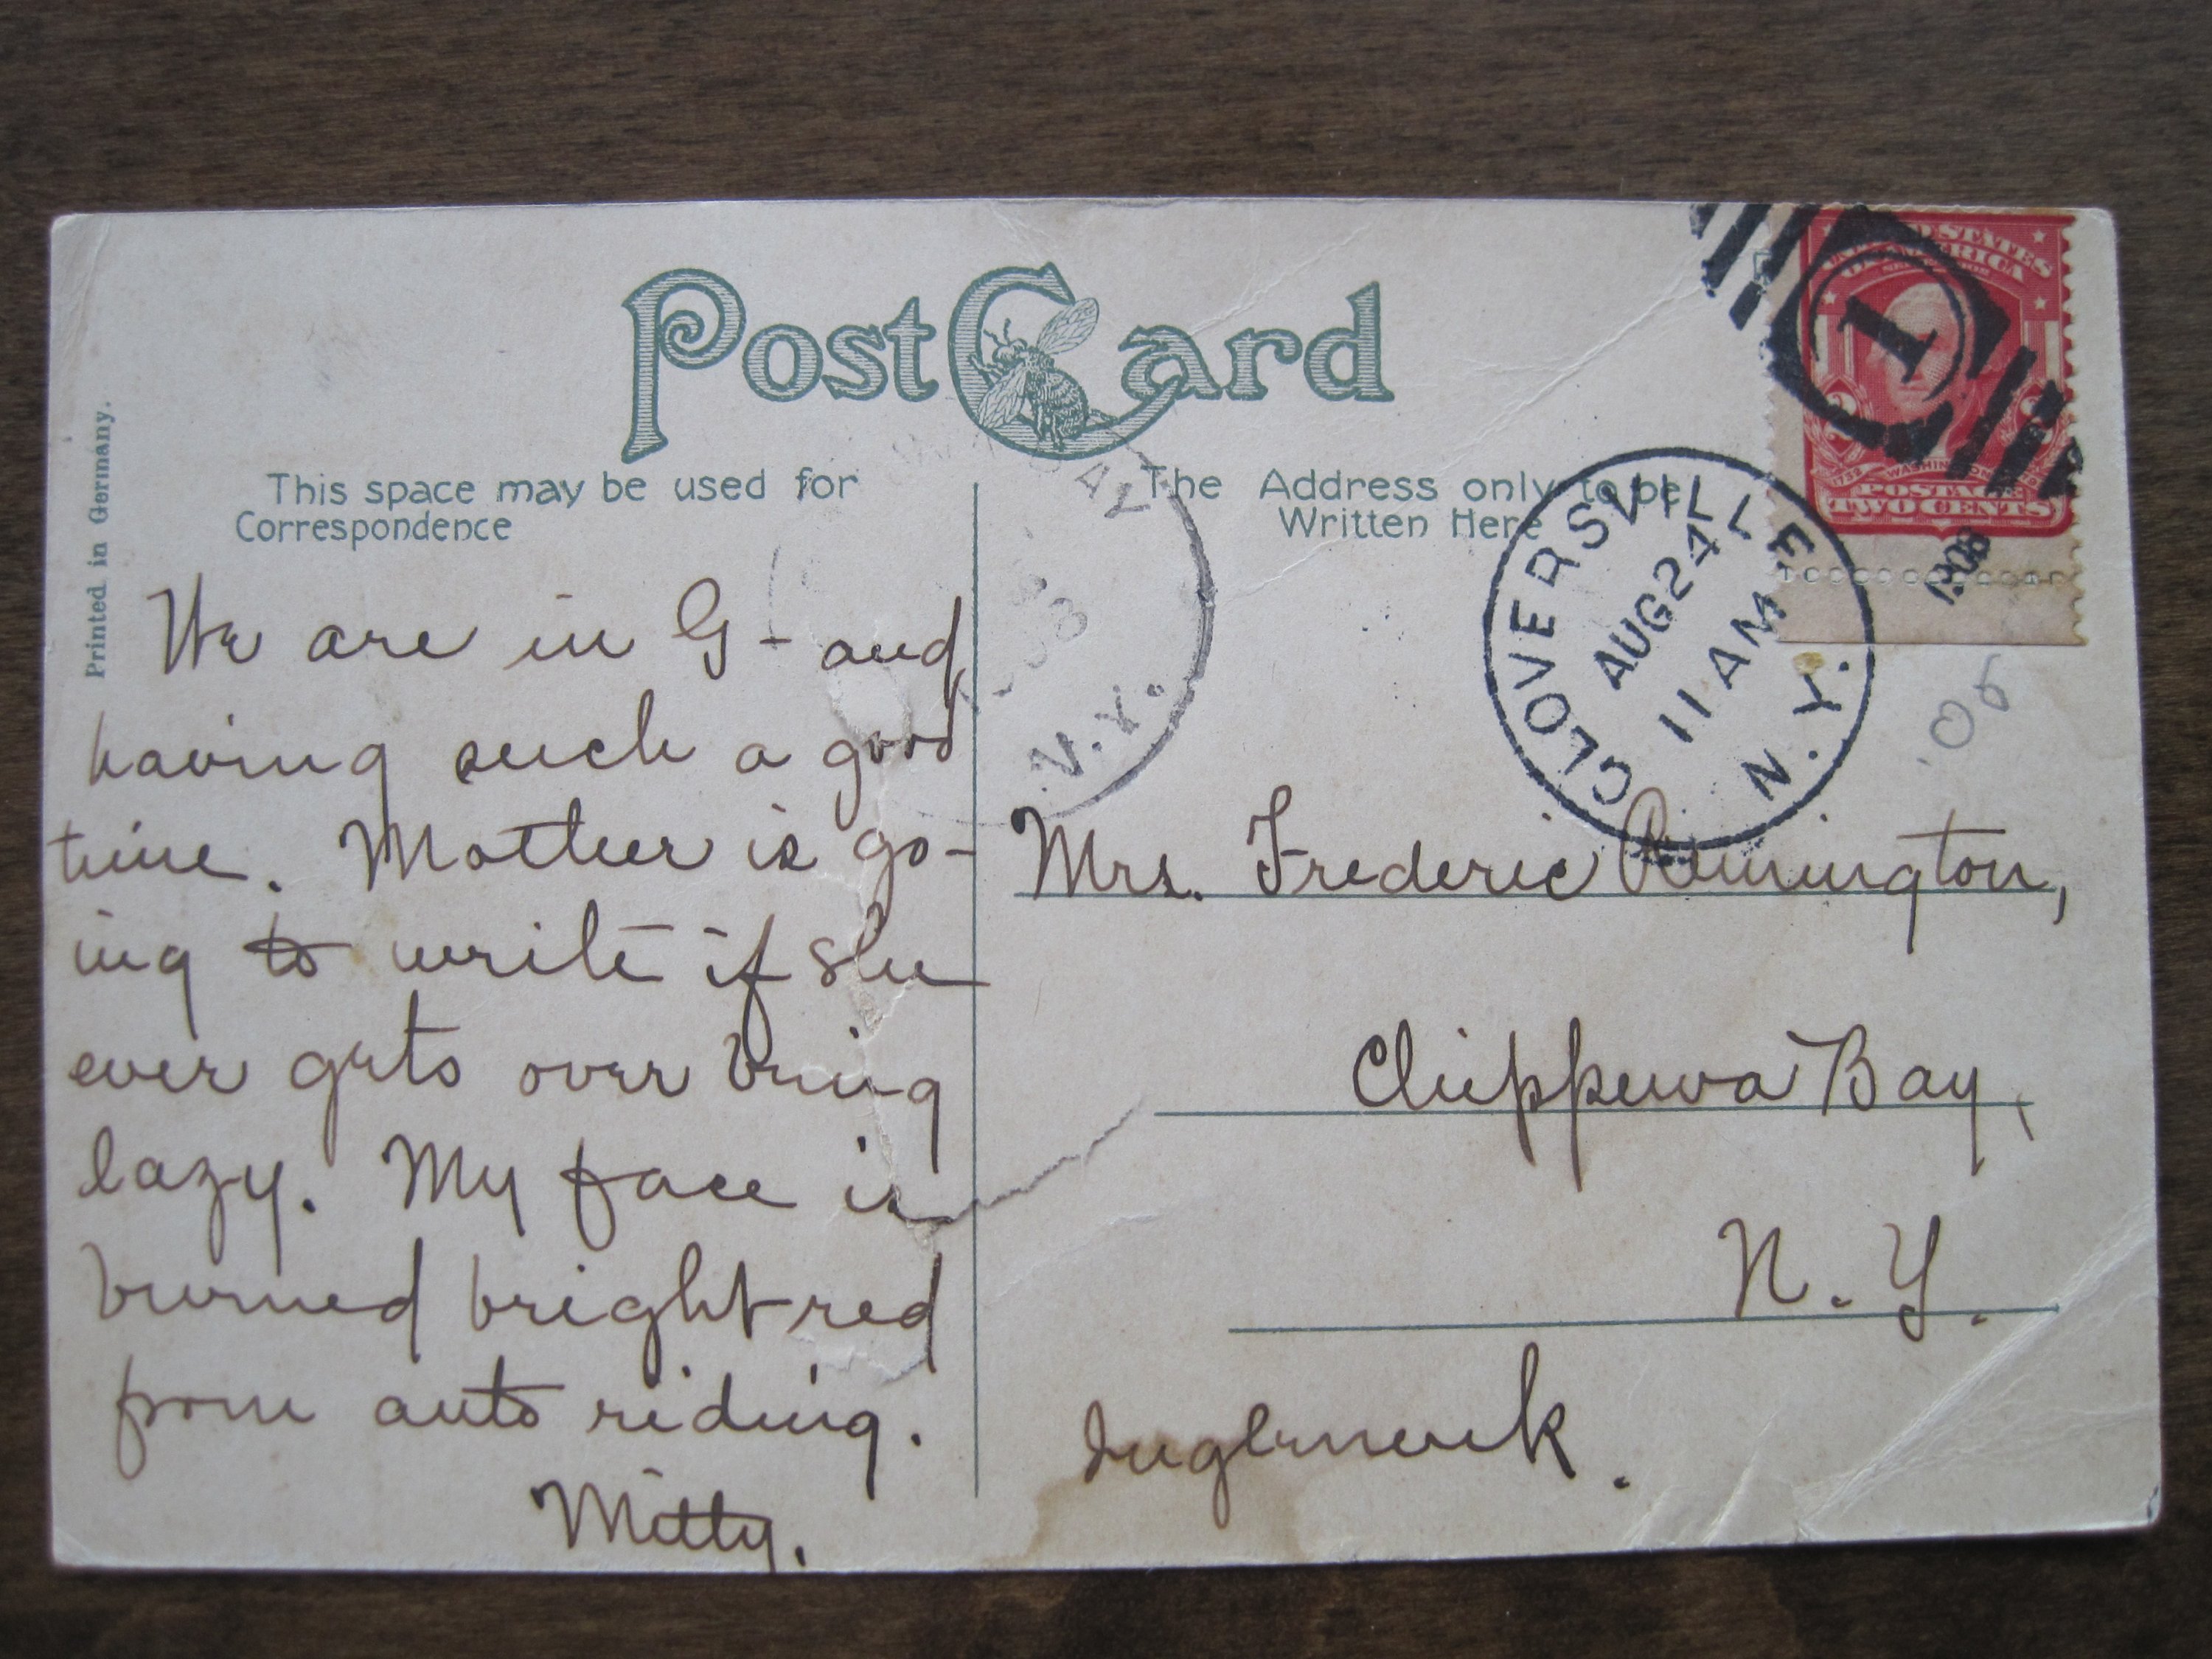 Post Card
Printed in Germany.
This space may be used for
Correspondence
The Address only to be
Written Here
UNITED STATES
OF AMERICA
SERIES 1902
1
2
2
1732 WASHINGTON 1799
POSTAGE
TWO CENTS
1908
CLOVERSVILLE
AUG 24
11 AM
N. Y.
BAY
N.Y.
'08
We are in G- and
having such a good
time. Mother is go-
ing to write if she
ever gets over being
lazy. My face is
burned bright red
from auto riding.
Mitty.
Mrs. Frederic Remington,
Chippewa Bay,
N. Y.
Ingleneuk.